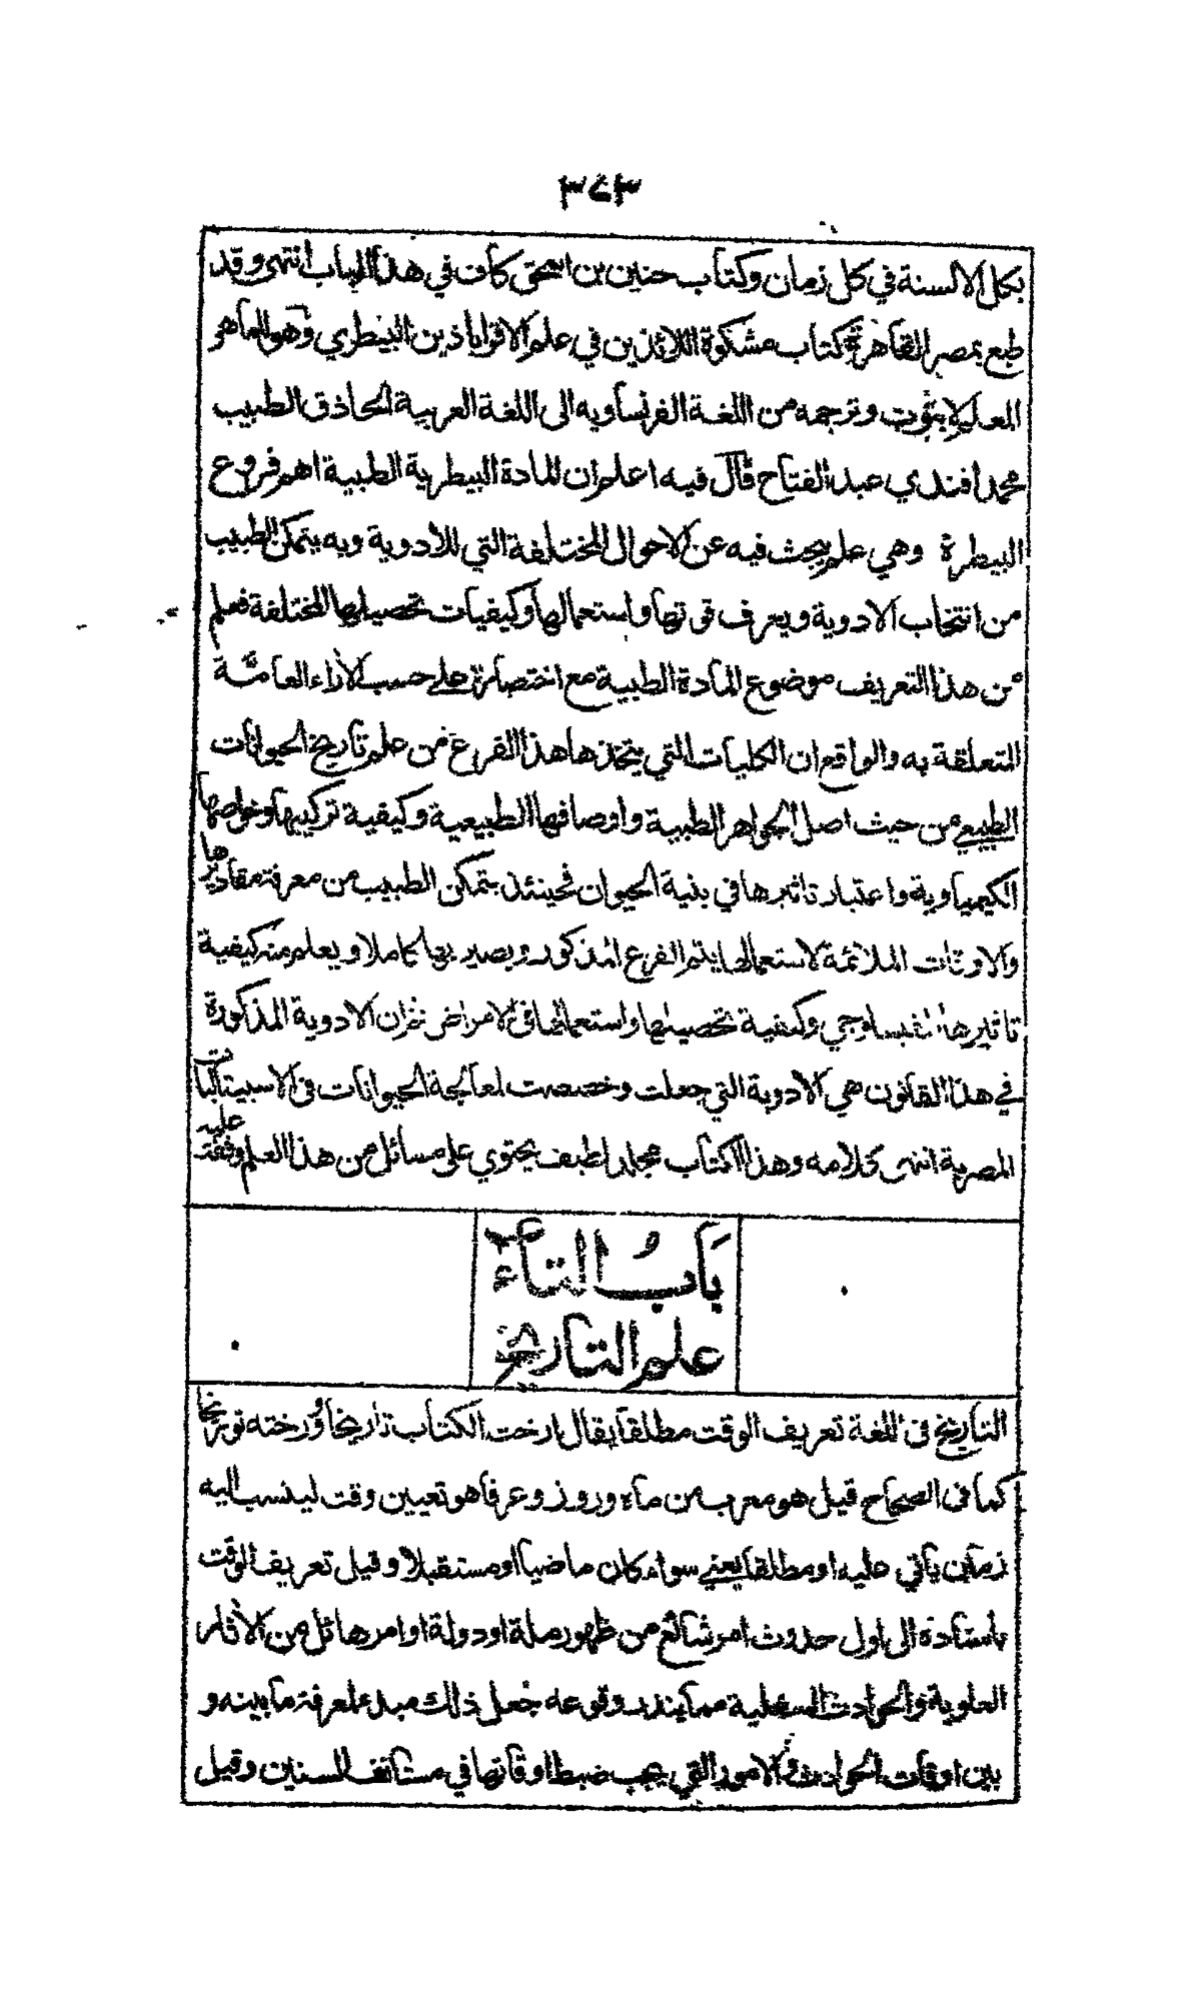 ٣٧٣
بكل الالسنة في كل زمان وكتاب حنين بن اسحق كاف في هذا الباب انتهى وقد
طبع بمصر القاهرة كتاب مشكوة اللائذين في علم الاقراباذين البيطري وهو للماهر
المعلم وترجمه من اللغة الفرنساويه الى اللغة العربية الحاذق الطبيب
محمد افندي عبد الفتاح قال فيه اعلم ان للمادة البيطرية الطبية اهم فروع
البيطرة وهي علم يبحث فيه عن الاحوال المختلفة التي للادوية وبه يتمكن الطبيب
من انتخاب الادوية ويعرف قوتها واستعمالها وكيفيات تحصيلها المختلفة فعلم
من هذا التعريف موضوع المادة الطبية مع اختصاره على حسب الاراء العامة
المتعلقة به والواقع ان الكليات التي يتخذها هذا الفرع من علم تاريخ الحيوانات
الطبيعي من حيث اصل الجواهر الطبية واوصافها الطبيعية وكيفية تركيبها وخواصها
الكيمياوية واعتبار تاثيرها في بنية الحيوان فحينئذ يتمكن الطبيب من معرفة مقاديرها
والاوقات الملائمة لاستعمالها يتم الفرع المذكور ويصير بها كاملا ويعلم منه كيفية
تاثيرها وكيفية تحصيلها واستعمالها في الامراض ثم ان الادوية المذكورة
في هذا القانون هي الادوية التي جعلت وخصصت لمعالجة الحيوانات في الاسبيتاليات
المصرية انتهى كلامه وهذا الكتاب مجلد لطيف يحتوي على مسائل من هذا العلم وقفت عليه
باب التاء
علم التاريخ
التاريخ في اللغة تعريف الوقت مطلقا يقال ارخت الكتاب تاريخا وورخته توريخا
كما في الصحاح قيل هو معرب من ماه وروز وعرفا هو تعيين وقت لينسب اليه
زمان ياتي عليه او مطلقا يعني سواء كان ماضيا او مستقبلا وقيل تعريف الوقت
باسناده الى اول حدوث امر شائع من ظهور ملة او دولة او امر هائل من الاثار
العلوية والحوادث السفلية مما يندر وقوعه جعل ذلك مبدء لمعرفة ما بينه و
بين اوقات الحوادث والامور التي يجب ضبط اوقاتها في مستانف السنين وقيل